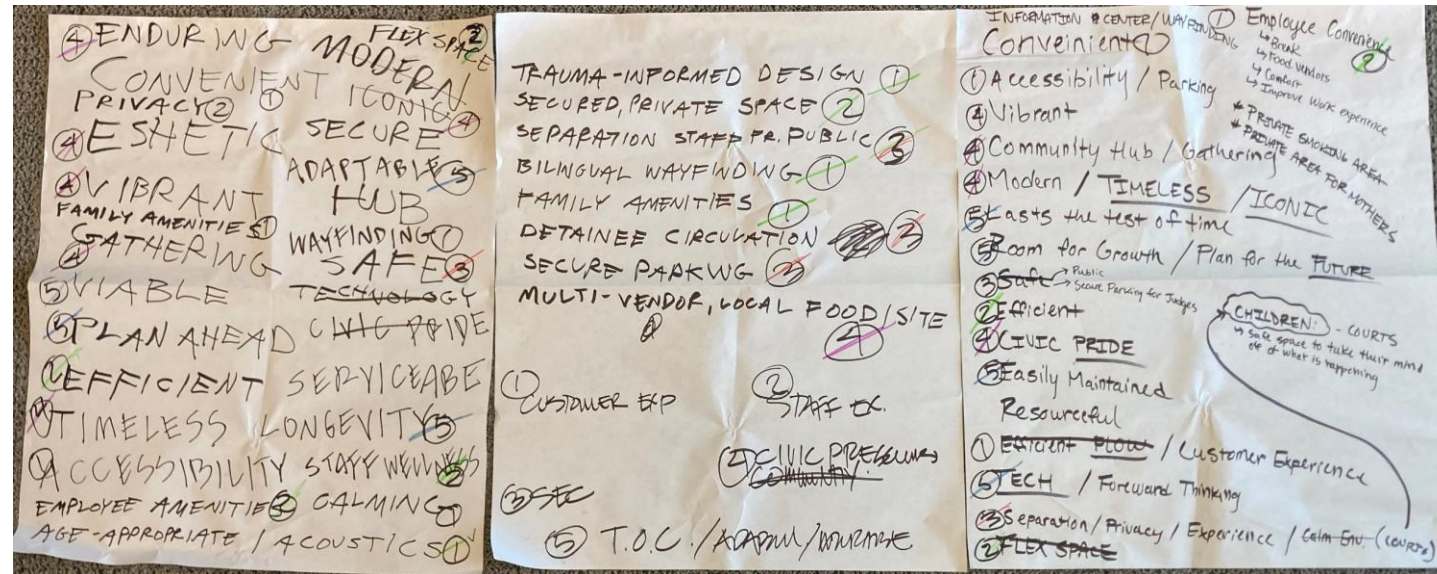 ④ ENDURING FLEX SPACE ②
MODERN
CONVENIENT ①
ICONIC ④
PRIVACY ②
④ ESHETIC SECURE
ADAPTABLE ⑤
④ VIBRANT HUB
FAMILY AMENITIES ①
WAYFINDING ①
④ GATHERING SAFE ③
⑤ VIABLE TECHNOLOGY
⑤ PLAN AHEAD CIVIC PRIDE
② EFFICIENT SERVICEABE
④ TIMELESS LONGEVITY ⑤
① ACCESSIBILITY STAFF WELLNESS
EMPLOYEE AMENITIES ② CALMING ①
AGE-APPROPRIATE / ACOUSTICS ①
TRAUMA-INFORMED DESIGN ①
SECURED, PRIVATE SPACE ②
SEPARATION STAFF FR. PUBLIC ③
BILINGUAL WAYFINDING ①
FAMILY AMENITIES ①
DETAINEE CIRCULATION ③
SECURE PARKING ③
MULTI-VENDOR, LOCAL FOOD / SITE
④
① CUSTOMER EXP
② STAFF EX.
④ CIVIC
COMMUNITY
③ SEC
⑤ T.O.C. / /
INFORMATION CENTER / WAYFINDING ①
Conveinient ①
① Accessibility / Parking
④ Vibrant
④ Community Hub / Gathering
④ Modern / TIMELESS / ICONIC
⑤ Lasts the test of time
⑤ Room for Growth / Plan for the FUTURE
③ Safe → Public
→ Secure Parking for Judges
② Efficient
④ CIVIC PRIDE
⑤ Easily Maintained
Resourceful
① Efficient FLOW / Customer Experience
⑤ TECH / Foreward Thinking
③ Separation / Privacy / Experience / Calm Env. (COURTS)
② FLEX SPACE
Employee Convenience ②
↳ Break
↳ Food vendors
↳ Comfort
↳ Improve work experience
* PRIVATE SMOKING AREA
* PRIVATE AREA FOR MOTHERS
CHILDREN: - COURTS
↳ Safe space to take their mind
off of what is happening